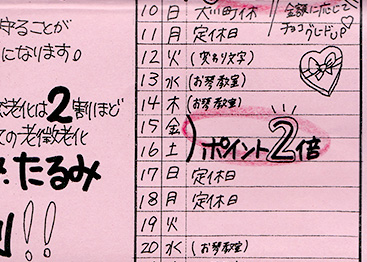 守ることが
になります。
老化は2割ほど
ての老徴老化
たるみ
!!
10 日
金額に応じて
11 月 定休日
12 火 (変わり文字)
13 水 (お琴教室)
14 木 (お琴教室)
15 金
16 土
ポイント2倍
17 日 定休日
18 月 定休日
19 火
20 水 (お琴教室)